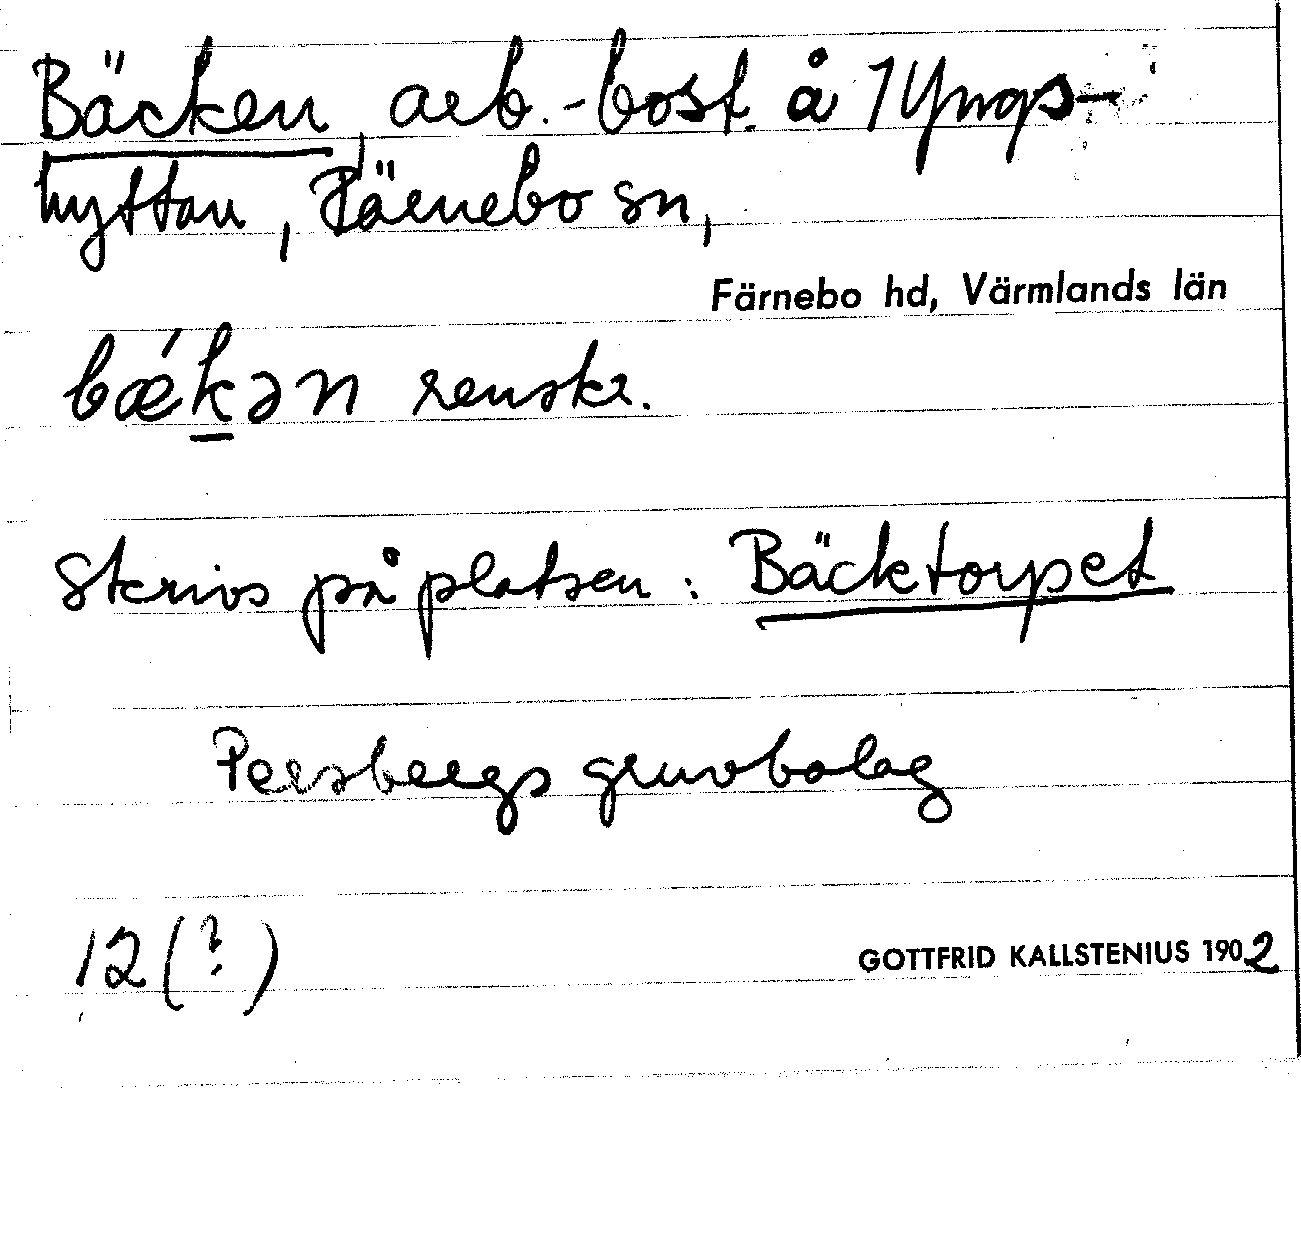 Bäcken, arb.-bost. å 1 Yngs-
hyttan, Färnebo sn,
Färnebo hd, Värmlands län
bǽk̲ən renskr.
Skrivs på platsen: Bäcktorpet
Persbergs gruvbolag
12 (?)
GOTTFRID KALLSTENIUS 1902